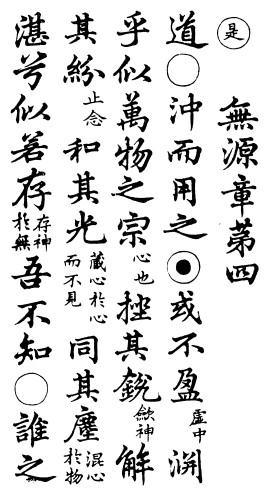 是 無源章第四
道〇沖而用之◉或不盈虛中淵
乎似萬物之宗心也挫其銳歛神解
其紛止念和其光藏心於心而不見同其塵混心於物
湛兮似若存存神於無吾不知〇誰之